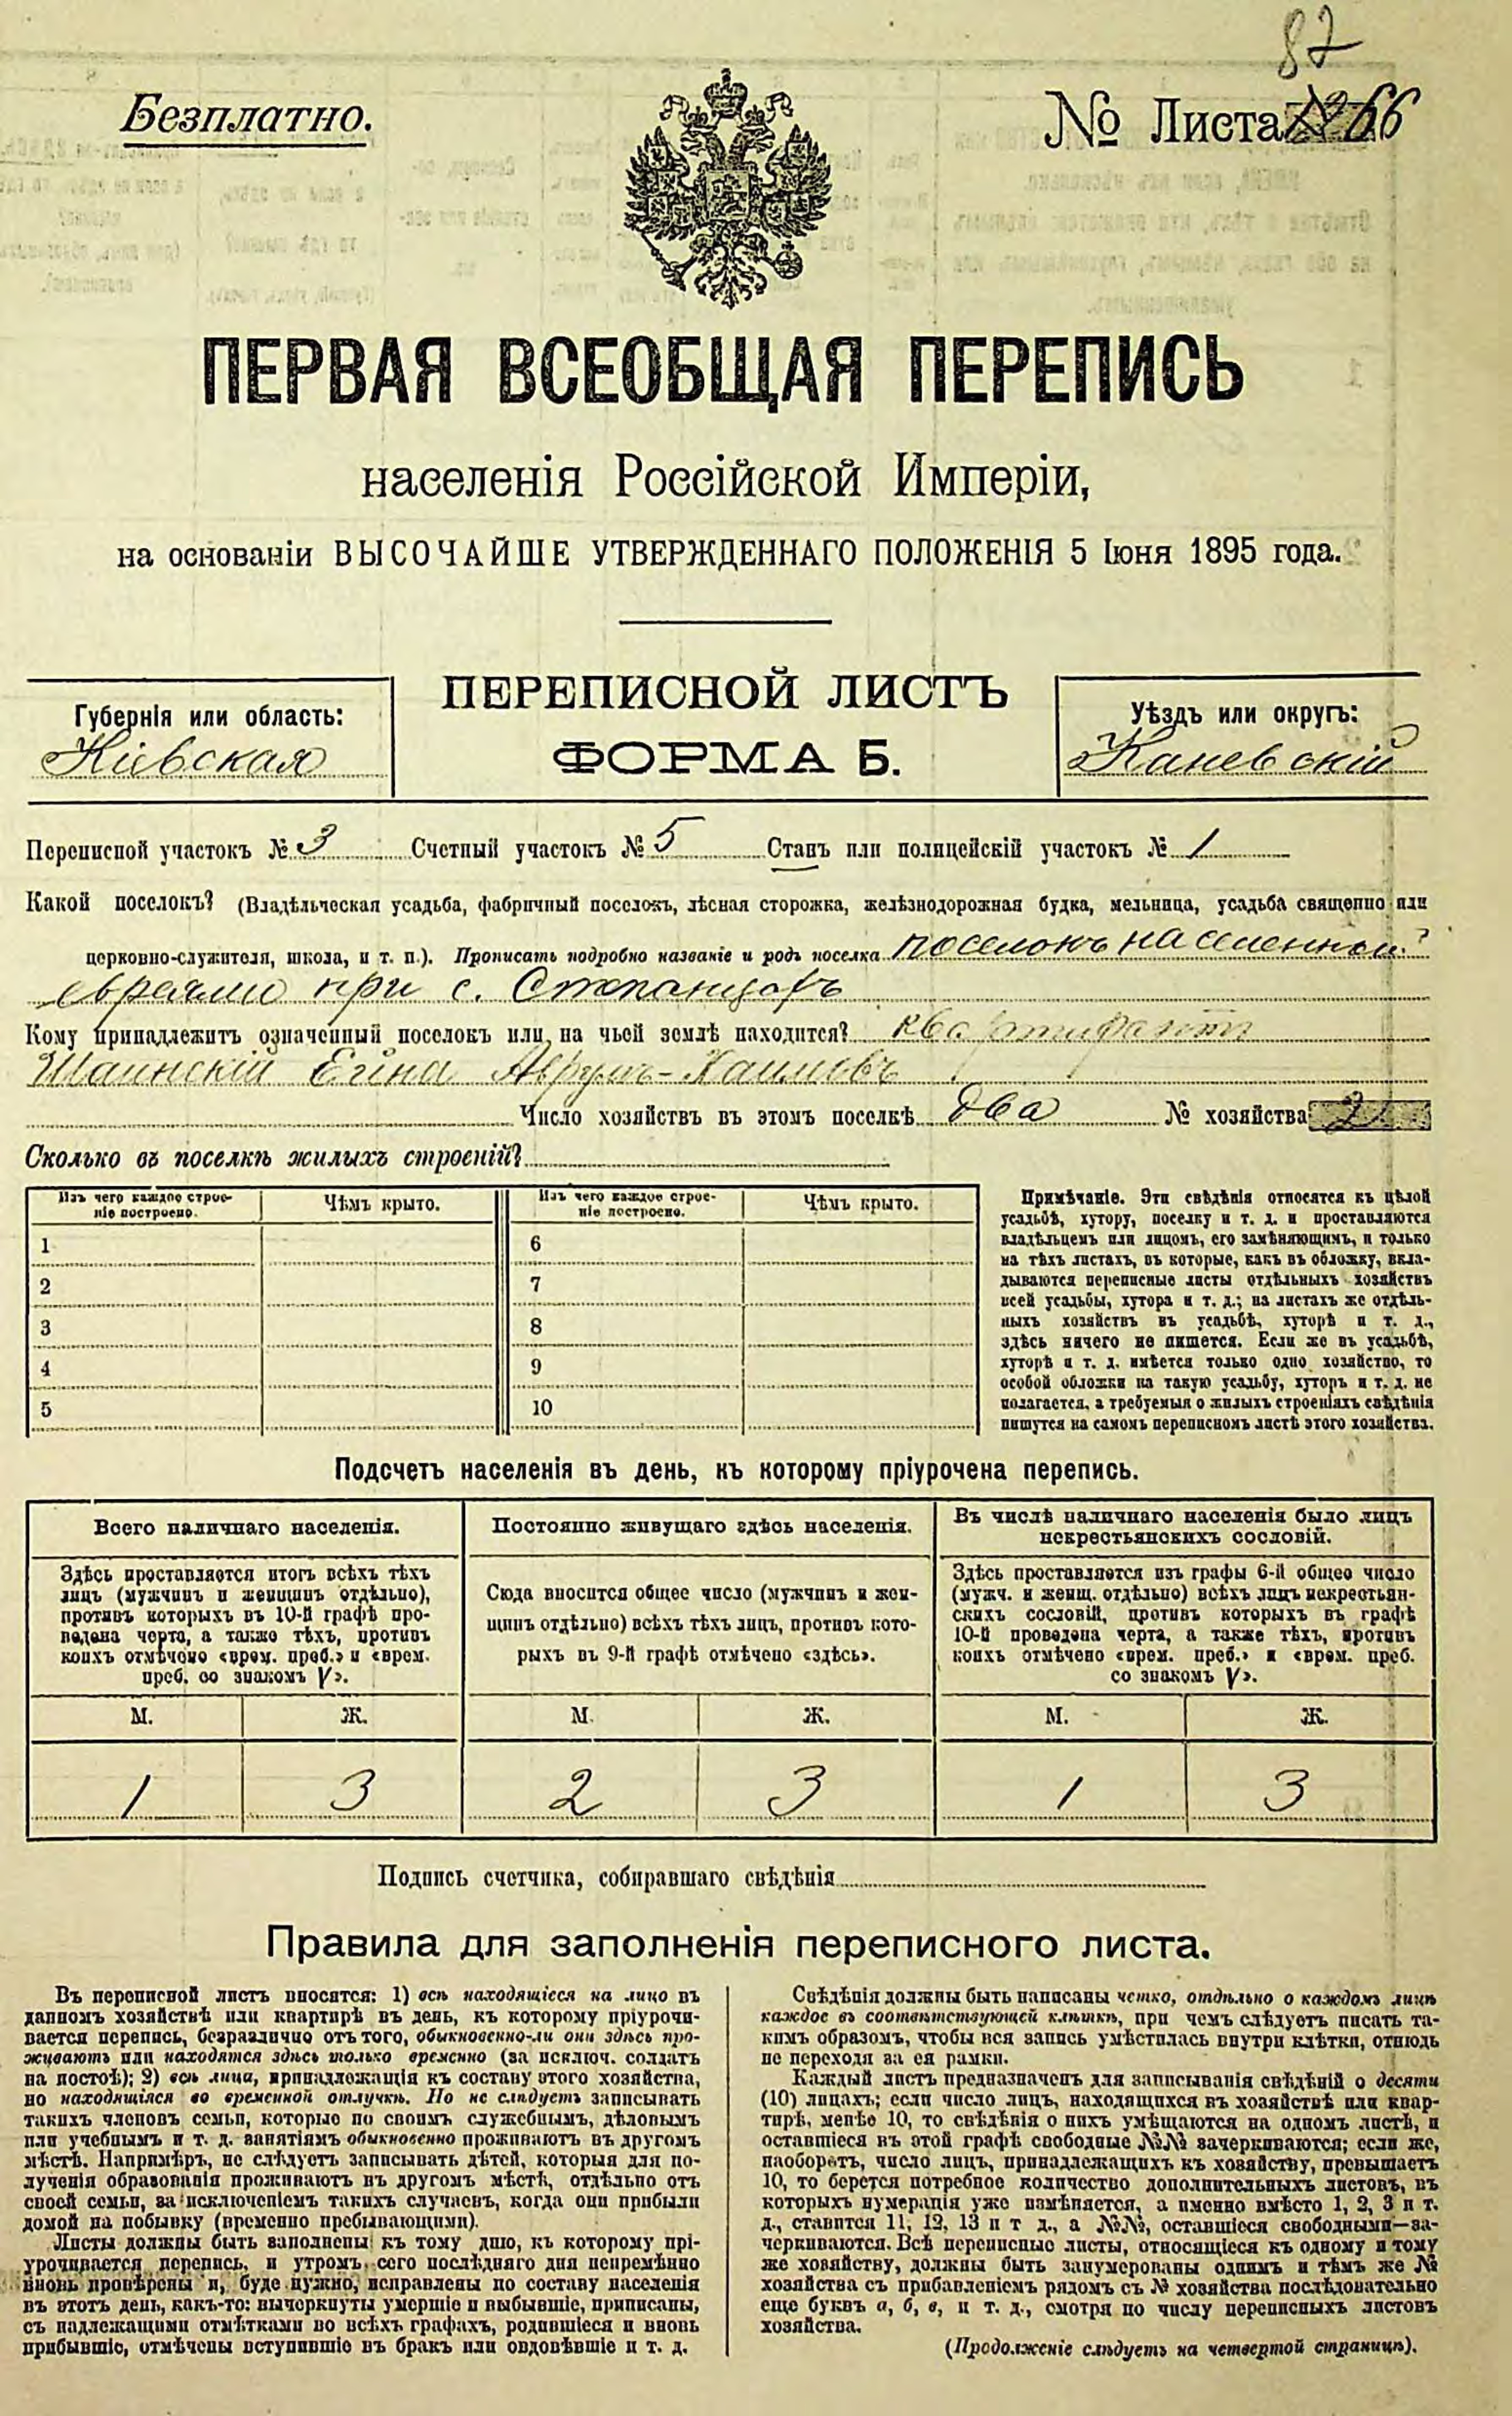 87
Безплатно.
№ Листа 66
ПЕРВАЯ ВСЕОБЩАЯ ПЕРЕПИСЬ
населенія Россійской Имперіи,
на основаніи ВЫСОЧАЙШЕ УТВЕРЖДЕННАГО ПОЛОЖЕНІЯ 5 Іюня 1895 года.
ПЕРЕПИСНОЙ ЛИСТЪ
ФОРМА Б.
Губернія или область:
Кіевская
Уѣздъ или округъ:
Каневскій
Переписной участокъ № 3 Счетный участокъ № 5 Станъ или полицейскій участокъ № 1
Какой поселокъ? (Владѣльческая усадьба, фабричный поселокъ, лѣсная сторожка, желѣзнодорожная будка, мельница, усадьба священно или
церковно-служителя, школа, и т. п.). Прописать подробно названіе и родъ поселка поселокъ населенный
евреями при с.
Кому принадлежитъ означенный поселокъ или на чьей землѣ находится? квартирантъ
Аврумъ-Хаимовъ
Число хозяйствъ въ этомъ поселкѣ два № хозяйства 2
Сколько въ поселкѣ жилыхъ строеній?
Изъ чего каждое строе-
ніе построено.
Чѣмъ крыто.
Изъ чего каждое строе-
ніе построено.
Чѣмъ крыто.
1 6
2 7
3 8
4 9
5 10
Примѣчаніе. Эти свѣдѣнія относятся къ цѣлой
усадьбѣ, хутору, поселку и т. д. и проставляются
владѣльцемъ или лицомъ, его замѣняющимъ, и только
на тѣхъ листахъ, въ которые, какъ въ обложку, вкла-
дываются переписные листы отдѣльныхъ хозяйствъ
всей усадьбы, хутора и т. д.; на листахъ же отдѣль-
ныхъ хозяйствъ въ усадьбѣ, хуторѣ и т. д.,
здѣсь ничего не пишется. Если же въ усадьбѣ,
хуторѣ и т. д. имѣется только одно хозяйство, то
особой обложки на такую усадьбу, хуторъ и т. д. не
полагается, а требуемыя о жилыхъ строеніяхъ свѣдѣнія
пишутся на самомъ переписномъ листѣ этого хозяйства.
Подсчетъ населенія въ день, къ которому пріурочена перепись.
Всего наличнаго населенія.
Здѣсь проставляется итогъ всѣхъ тѣхъ
лицъ (мужчинъ и женщинъ отдѣльно),
противъ которыхъ въ 10-й графѣ про-
ведена черта, а также тѣхъ, противъ
коихъ отмѣчено «врем. преб.» и «врем.
преб. со знакомъ V».
Постоянно живущаго здѣсь населенія.
Сюда вносится общее число (мужчинъ и жен-
щинъ отдѣльно) всѣхъ тѣхъ лицъ, противъ кото-
рыхъ въ 9-й графѣ отмѣчено «здѣсь».
Въ числѣ наличнаго населенія было лицъ
некрестьянскихъ сословій.
Здѣсь проставляется изъ графы 6-й общее число
(мужч. и женщ. отдѣльно) всѣхъ лицъ некрестьян-
скихъ сословій, противъ которыхъ въ графѣ
10-й проведена черта, а также тѣхъ, противъ
коихъ отмѣчено «врем. преб.» и «врем. преб.
со знакомъ V».
М. Ж. М. Ж. М. Ж.
1 3 2 3 1 3
Подпись счетчика, собиравшаго свѣдѣнія
Правила для заполненія переписного листа.
Въ переписной листъ вносятся: 1) всѣ находящіеся на лицо въ
данномъ хозяйствѣ или квартирѣ въ день, къ которому пріурочи-
вается перепись, безразлично отъ того, обыкновенно-ли они здѣсь про-
живаютъ или находятся здѣсь только временно (за исключ. солдатъ
на постоѣ); 2) всѣ лица, принадлежащія къ составу этого хозяйства,
но находящіяся во временной отлучкѣ. Но не слѣдуетъ записывать
такихъ членовъ семьи, которые по своимъ служебнымъ, дѣловымъ
или учебнымъ и т. д. занятіямъ обыкновенно проживаютъ въ другомъ
мѣстѣ. Напримѣръ, не слѣдуетъ записывать дѣтей, которыя для по-
лученія образованія проживаютъ въ другомъ мѣстѣ, отдѣльно отъ
своей семьи, за исключеніемъ такихъ случаевъ, когда они прибыли
домой на побывку (временно пребывающими).
Листы должны быть заполнены къ тому дню, къ которому прі-
урочивается перепись, и утромъ сего послѣдняго дня непремѣнно
вновь провѣрены и, буде нужно, исправлены по составу населенія
въ этотъ день, какъ-то: вычеркнуты умершіе и выбывшіе, приписаны,
съ надлежащими отмѣтками во всѣхъ графахъ, родившіеся и вновь
прибывшіе, отмѣчены вступившіе въ бракъ или овдовѣвшіе и т. д.
Свѣдѣнія должны быть написаны четко, отдѣльно о каждомъ лицѣ
каждое въ соотвѣтствующей клѣткѣ, при чемъ слѣдуетъ писать та-
кимъ образомъ, чтобы вся запись умѣстилась внутри клѣтки, отнюдь
не переходя за ея рамки.
Каждый листъ предназначенъ для записыванія свѣдѣній о десяти
(10) лицахъ; если число лицъ, находящихся въ хозяйствѣ или квар-
тирѣ, менѣе 10, то свѣдѣнія о нихъ умѣщаются на одномъ листѣ, и
оставшіеся въ этой графѣ свободные №№ зачеркиваются; если же,
наоборотъ, число лицъ, принадлежащихъ къ хозяйству, превышаетъ
10, то берется потребное количество дополнительныхъ листовъ, въ
которыхъ нумерація уже измѣняется, а именно вмѣсто 1, 2, 3 и т.
д., ставится 11, 12, 13 и т д., а №№, оставшіеся свободными—за-
черкиваются. Всѣ переписные листы, относящіеся къ одному и тому
же хозяйству, должны быть занумерованы однимъ и тѣмъ же №
хозяйства съ прибавленіемъ рядомъ съ № хозяйства послѣдовательно
еще буквъ а, б, в, и т. д., смотря по числу переписныхъ листовъ
хозяйства.
(Продолженіе слѣдуетъ на четвертой страницѣ).